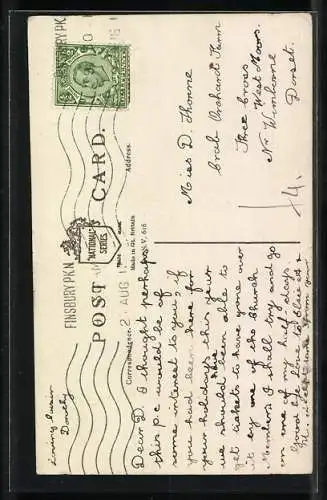 FINSBURY PK N.
2 AUG
POST CARD.
NATIONAL SERIES
TRADE MARK
Made in Gt. Britain.
M.L.V. 616
Correspondence.
Address.
Dear D. I thought perhaps
this p.c would be of
some interest to you, if
you had been here for
your holidays this year
we should have been able to
get tickets to have gone over
it by one of the Church
Members. I shall try and go
on one of my half days.
Good bye love to
love from your
loving cousin
Dorothy
Miss D. Thorne
Crab Orchard Farm
Three Cross
West Moors.
Nr Wimborne
Dorset.
14.